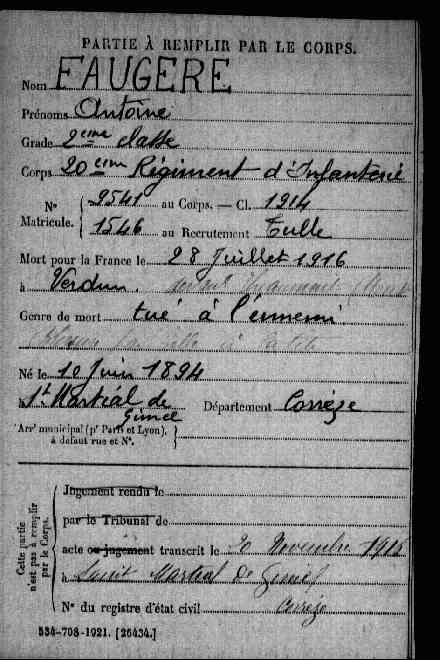 PARTIE À REMPLIR PAR LE CORPS.
Nom FAUGERE
Prénoms Antoine
Grade 2eme classe
Corps 20 eme Régiment d'Infanterie
N° Matricule. { 9541 au Corps. — Cl. 1914
1546 au Recrutement Tulle
Mort pour la France le 28 Juillet 1916
à Verdun.
Genre de mort tué à l'ennemi
Né le 10 Juin 1894
à St Martial de Gimel Département Corrèze
Arrt municipal (pr Paris et Lyon), à défaut rue et N°. }
Cette partie n'est pas à remplir par le Corps.
Jugement rendu le
par le Tribunal de
acte ou jugement transcrit le 20 Novembre 1916
à Saint Martial de Gimel
N° du registre d'état civil Corrèze
534-708-1921. [26434.]